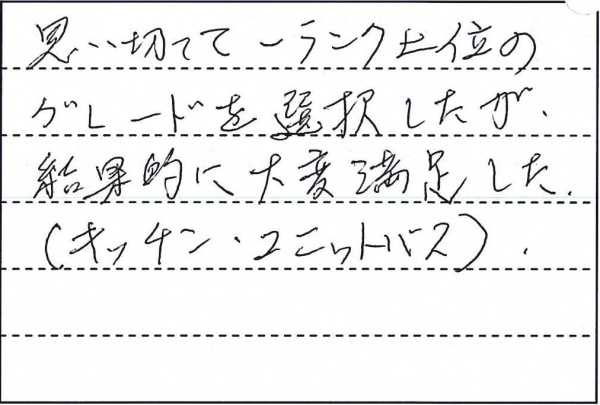 思い切って一ランク上位の
グレードを選択したが、
結果的に大変満足した。
(キッチン・ユニットバス)。